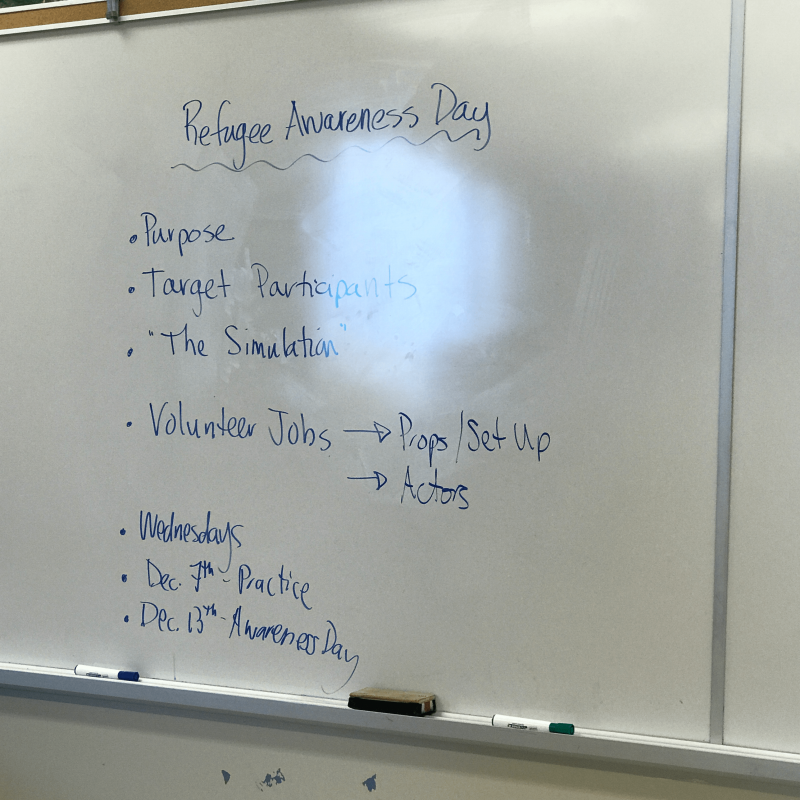 Refugee Awareness Day
• Purpose
• Target Participants
• "The Simulation"
• Volunteer Jobs → Props/Set Up
→ Actors
• Wednesdays
• Dec. 7th - Practice
• Dec. 13th - Awareness Day